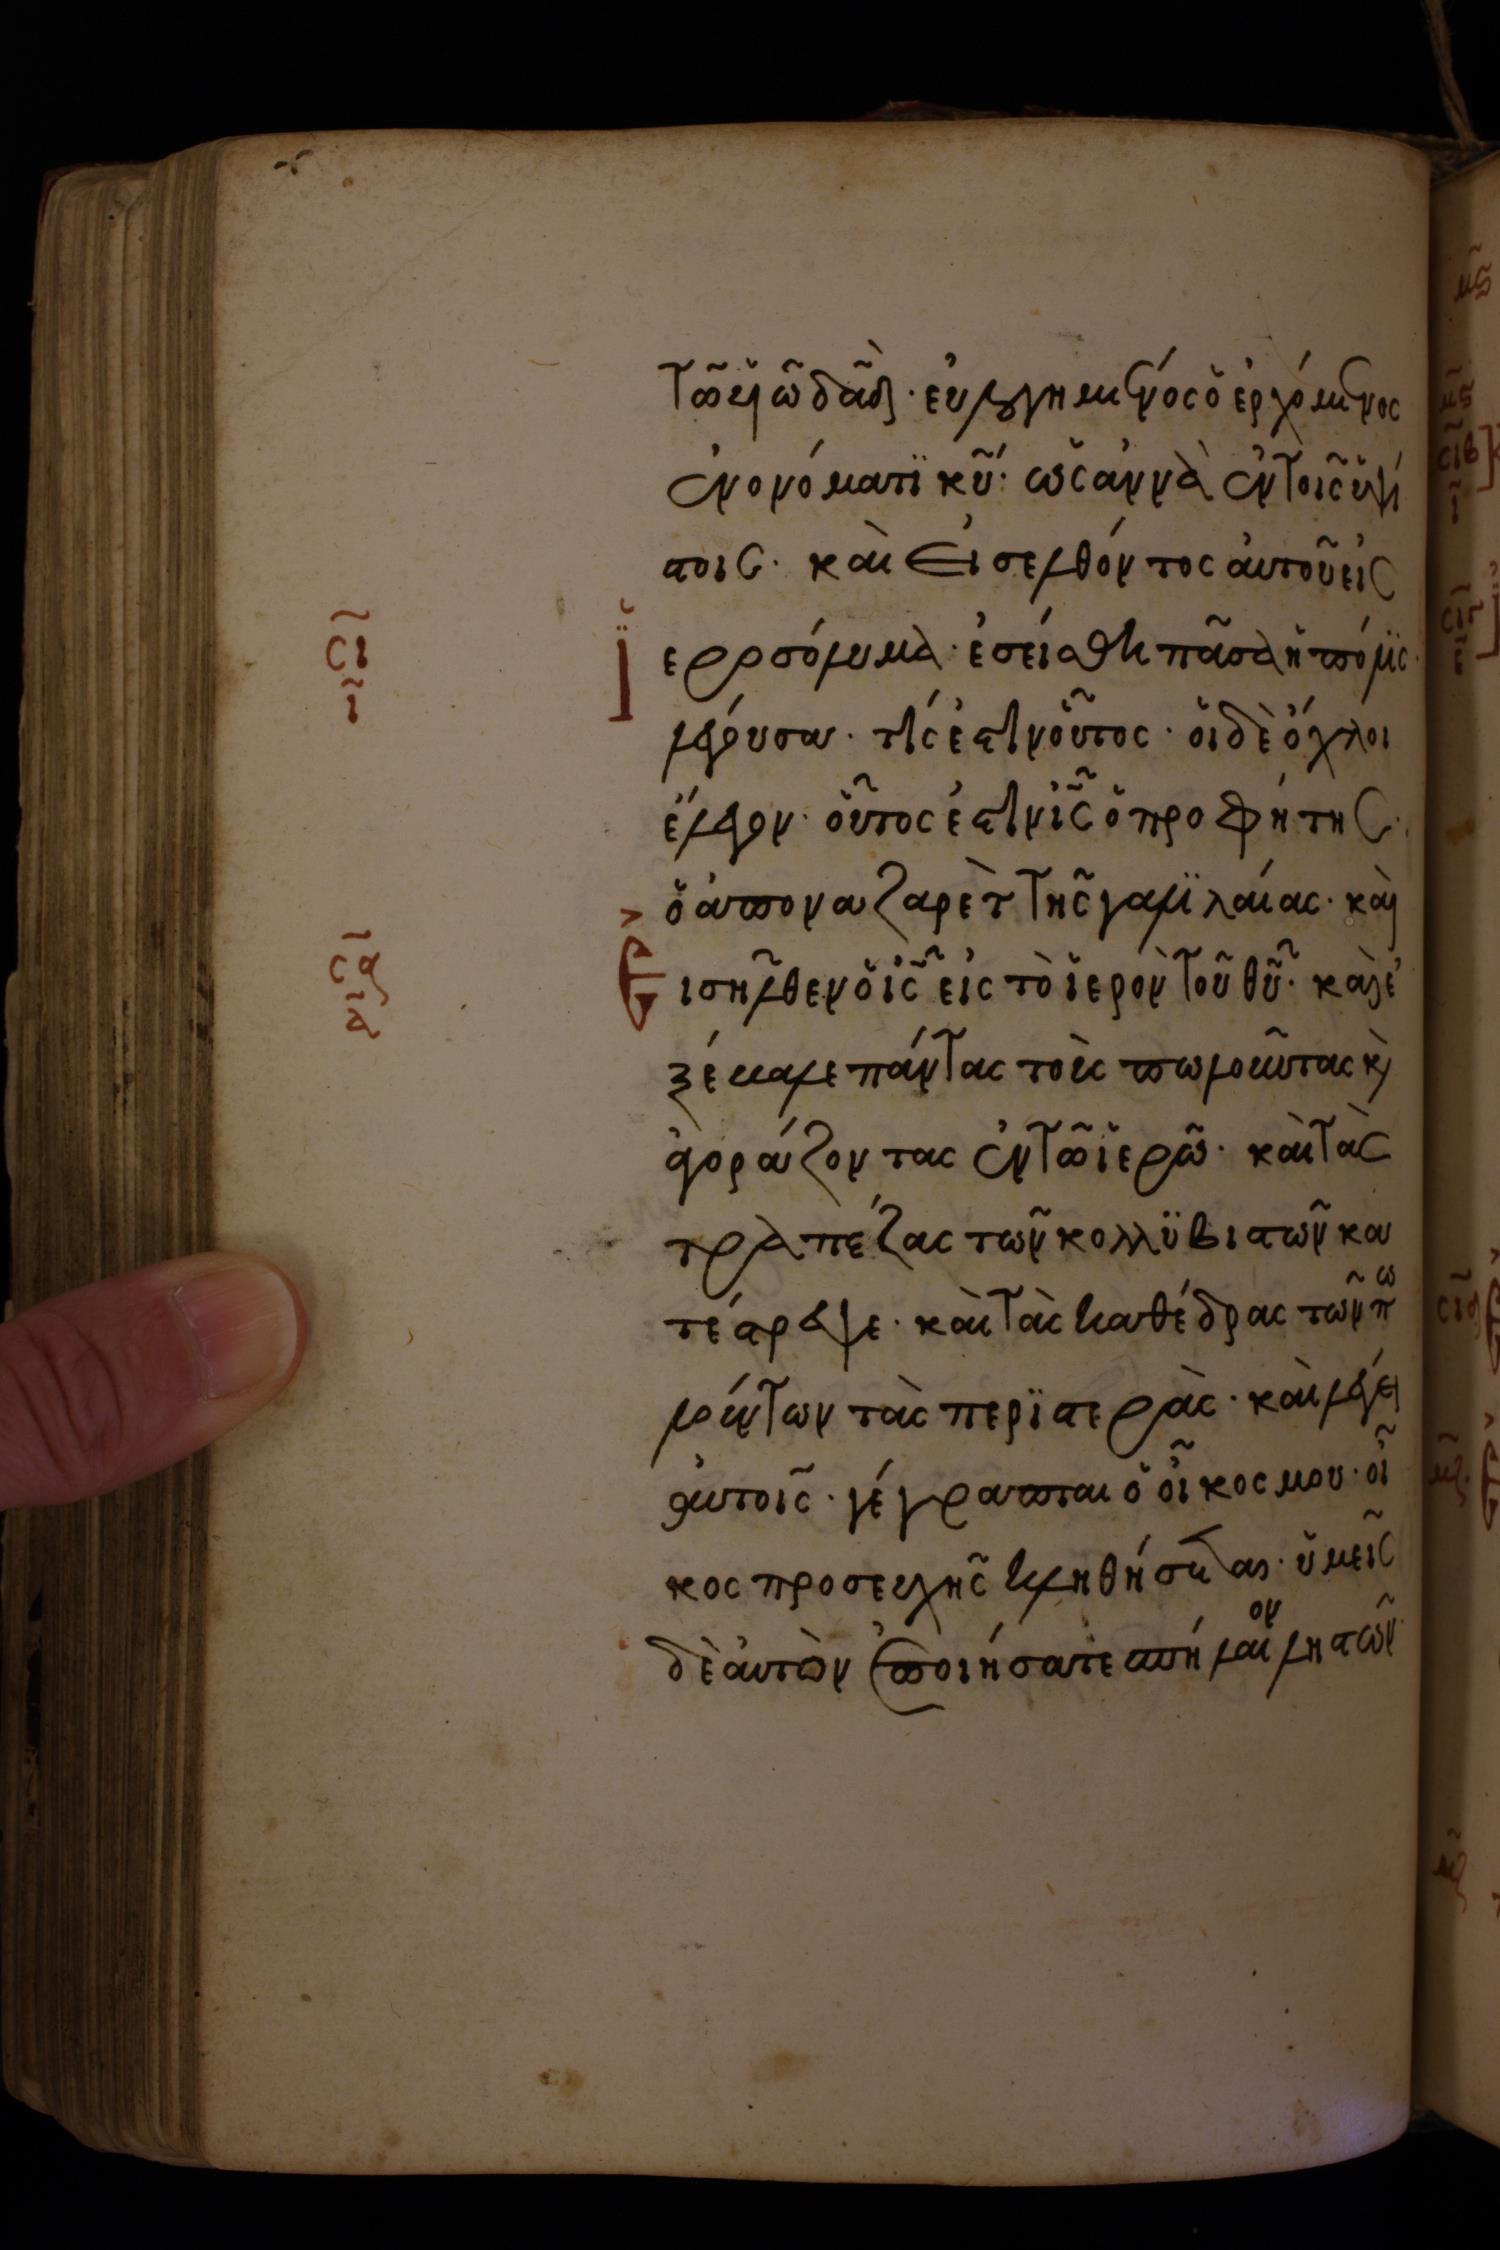 τῶ υἱῶ δαδ· εὐλογημένος ὁ ἐρχόμενος
ἐν ὀνόματϊ κυ· ὡσαννὰ ἐν τοῖς ὑψί
στοις· καὶ εἰσελθόντος αὐτοῦ εἰς
σι
ι
ϊεροσόλυμα· ἐσείσθη πᾶσα ἡ πόλϊς·
λέγουσα· τίς ἐστιν οὗτος· οἱ δὲ ὄχλοι
ἔλεγον· οὗτός ἐστιν ις ὁ προφήτης·
ὁ ἀπο ναζαρὲτ τῆς γαλϊλαίας· καὶ
σια
δ
εισῆλθεν ὁ ις εἰς τὸ ἱερὸν τοῦ θυ· καὶ ἐ
ξέβαλε πάντας τοὺς πωλοῦντας κ
ἀγοράζοντας ἐν τῶ ἱερῶ· καὶ τὰς
τραπέζας τῶν κολλϋβιστῶν κα
τέστρεψε· καὶ τὰς καθέδρας τῶν πω
λούντων τὰς περϊστεράς· καὶ λέγει
αὐτοῖς· γέγραπται ὁ οἶκος μου· οἶ
κος προσευχῆς κληθήσεται· ὑμεῖς
δὲ αὐτὸν ἐποιήσατε σπήλαιον ληστῶν·